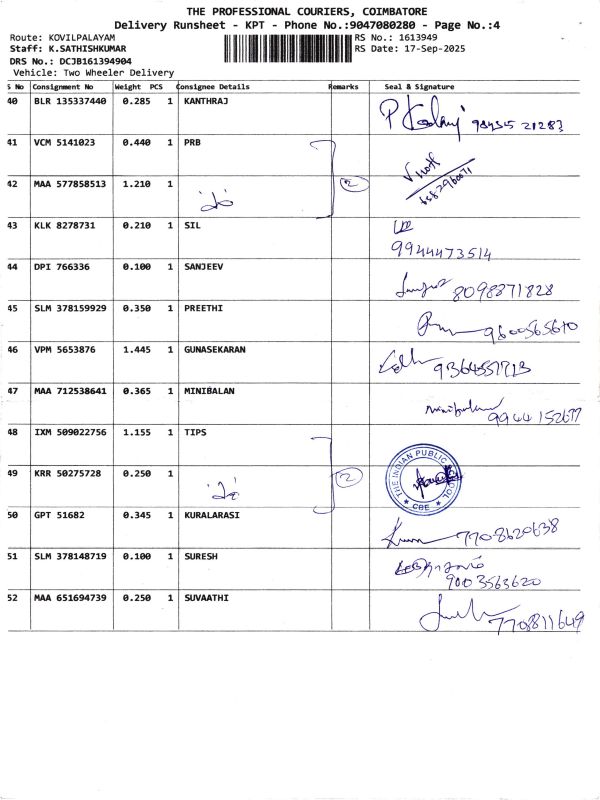 THE PROFESSIONAL COURIERS, COIMBATORE
Delivery Runsheet - KPT - Phone No.:9047080280 - Page No.:4
Route: KOVILPALAYAM
RS No.: 1613949
Staff: K.SATHISHKUMAR
RS Date: 17-Sep-2025
DRS No.: DCJB161394904
Vehicle: Two Wheeler Delivery
S No Consignment No Weight PCS Consignee Details Remarks Seal & Signature
40 BLR 135337440 0.285 1 KANTHRAJ 98435 21283
41 VCM 5141023 0.440 1 PRB
42 MAA 577858513 1.210 1 2
43 KLK 8278731 0.210 1 SIL
9944473514
44 DPI 766336 0.100 1 SANJEEV 8098871828
45 SLM 378159929 0.350 1 PREETHI 9600565610
46 VPM 5653876 1.445 1 GUNASEKARAN
47 MAA 712538641 0.365 1 MINIBALAN Minibalan
9944152677
48 IXM 509022756 1.155 1 TIPS
THE INDIAN PUBLIC SCHOOL
CBE
49 KRR 50275728 0.250 1 2
50 GPT 51682 0.345 1 KURALARASI 7708620638
51 SLM 378148719 0.100 1 SURESH
9003563620
52 MAA 651694739 0.250 1 SUVAATHI
7708811649